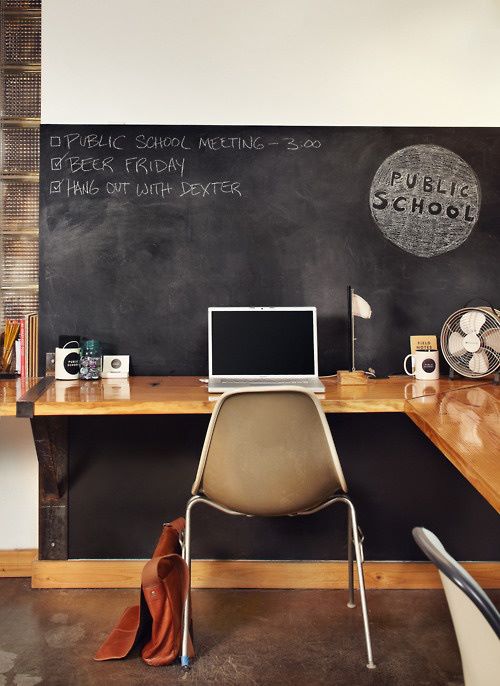 PUBLIC SCHOOL MEETING - 3:00
BEER FRIDAY
HANG OUT WITH DEXTER
PUBLIC
SCHOOL
FIELD
NOTES